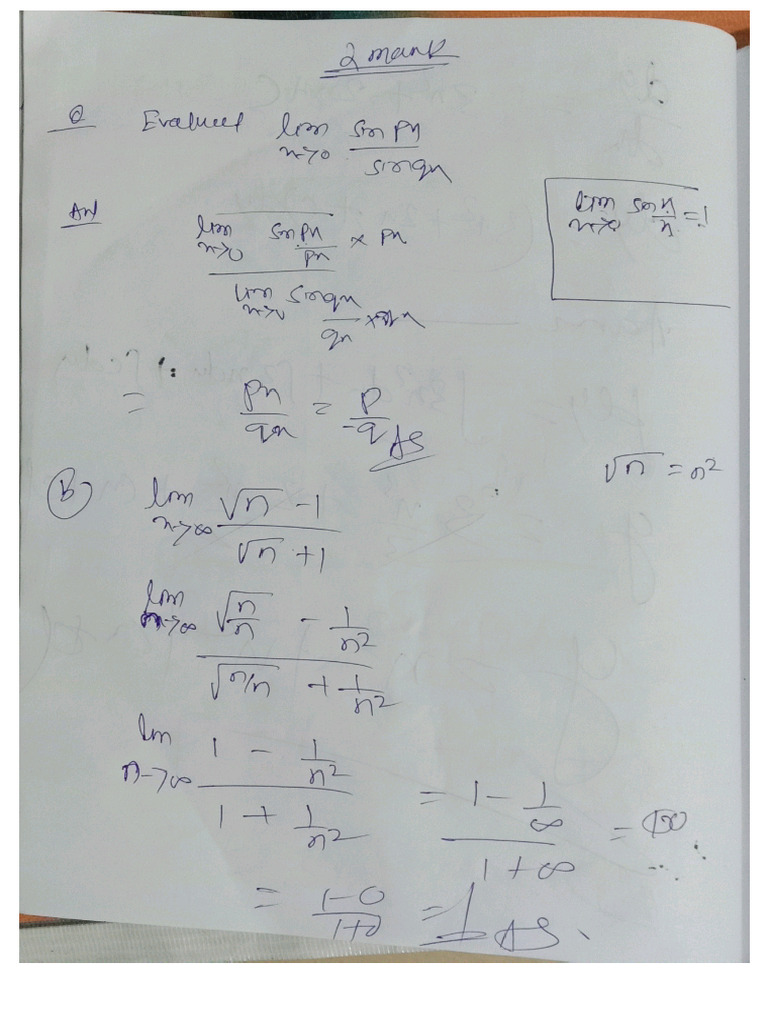 2 mark
Q Evaluet lim x→0 sin px / sin qx
An lim x→0 sin px / px × px
lim x→0 sin qx / qx × qx
lim x→0 sin x / x = 1
= px / qx = p / q As
(b) lim n→∞ √n - 1 / √n + 1
√n = n²
lim n→∞ √n/n - 1/n²
√n/n + 1/n²
lim n→∞ 1 - 1/n²
1 + 1/n²
= 1 - 1/∞
1 + ∞
= 1-0 / 1+0 = 1 As